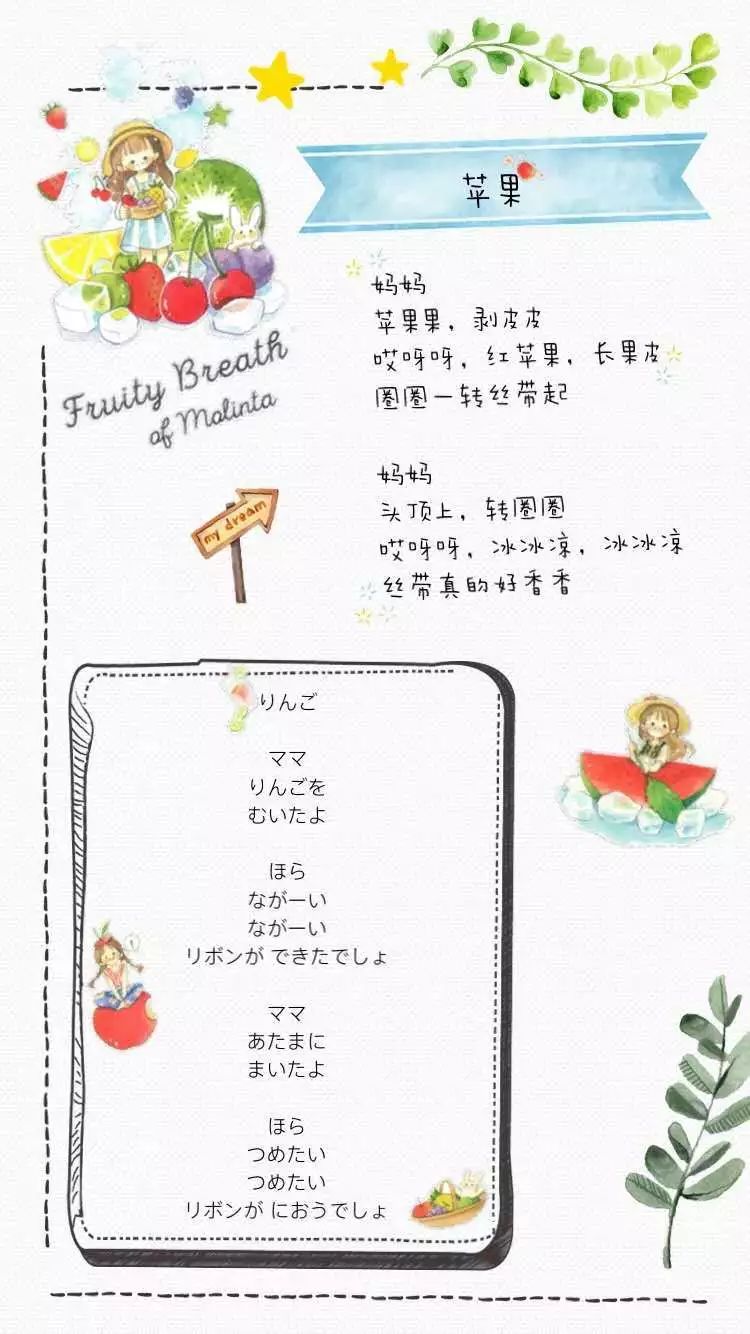 苹果
妈妈
苹果果，剥皮皮
哎呀呀，红苹果，长果皮
圈圈一转丝带起
妈妈
头顶上，转圈圈
哎呀呀，冰冰凉，冰冰凉
丝带真的好香香
Fruity Breath
of Malinta
my dream
りんご
ママ
りんごを
むいたよ
ほら
ながーい
ながーい
リボンが できたでしょ
ママ
あたまに
まいたよ
ほら
つめたい
つめたい
リボンが におうでしょ